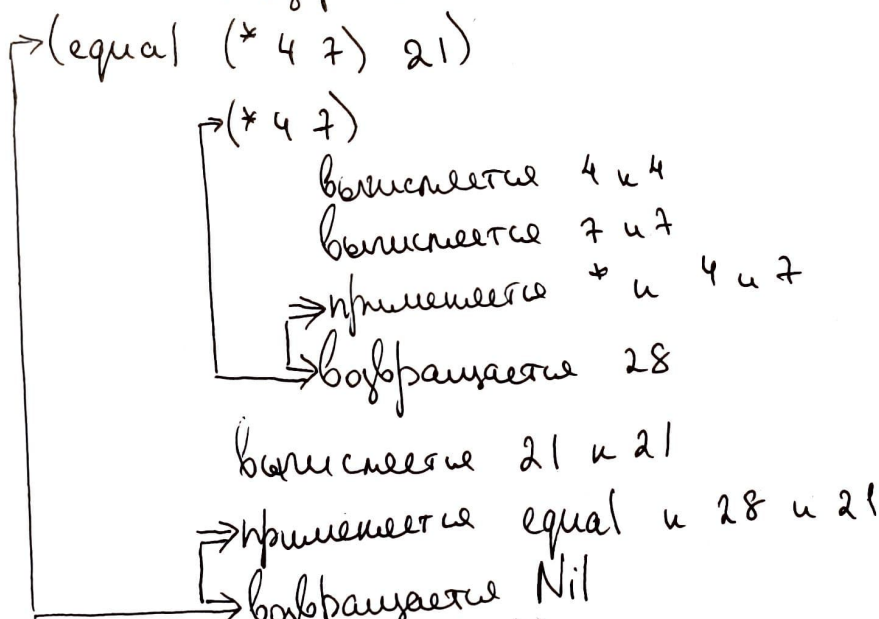 (equal (* 4 7) 21)
(* 4 7)
вычисляется 4 к 4
вычисляется 7 к 7
применяется * к 4 и 7
возвращается 28
вычисляется 21 к 21
применяется equal к 28 и 21
возвращается Nil